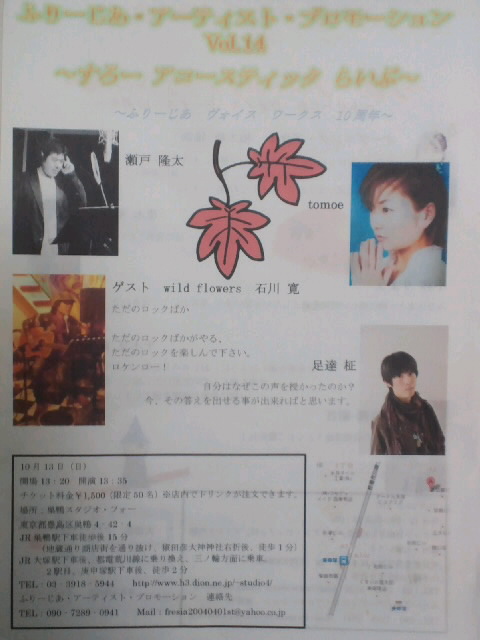 ふりーじあ・アーティスト・プロモーション
Vol.14
～すろー アコースティック らいぶ～
～ふりーじあ ヴォイス ワークス 10周年～
瀬戸 隆太
tomoe
ゲスト wild flowers 石川 寛
ただのロックばか
ただのロックばかがやる。
ただのロックを楽しんで下さい。
ロケンロー！
足達 柾
自分はなぜこの声を授かったのか？
今、その答えを出せる事が出来ればと思います。
10月13日（日）
開場13：20 開演13：35
チケット料金￥1,500（限定50名）※店内でドリンクが注文できます。
場所：巣鴨スタジオ・フォー
東京都豊島区巣鴨4‐42‐4
JR巣鴨駅下車徒歩15分
（地蔵通り商店街を通り抜け、猿田彦大神神社右折後、徒歩1分）
JR大塚駅下車、都電荒川線に乗り換え、三ノ輪方面に乗車、
2駅目、庚申塚駅下車後、徒歩2分
TEL：03‐3918‐5944 http://www.h3.dion.ne.jp/~studio4/
ふりーじあ・アーティスト・プロモーション 連絡先
TEL：090‐7289‐0941 Mail：fresia20040401st@yahoo.co.jp